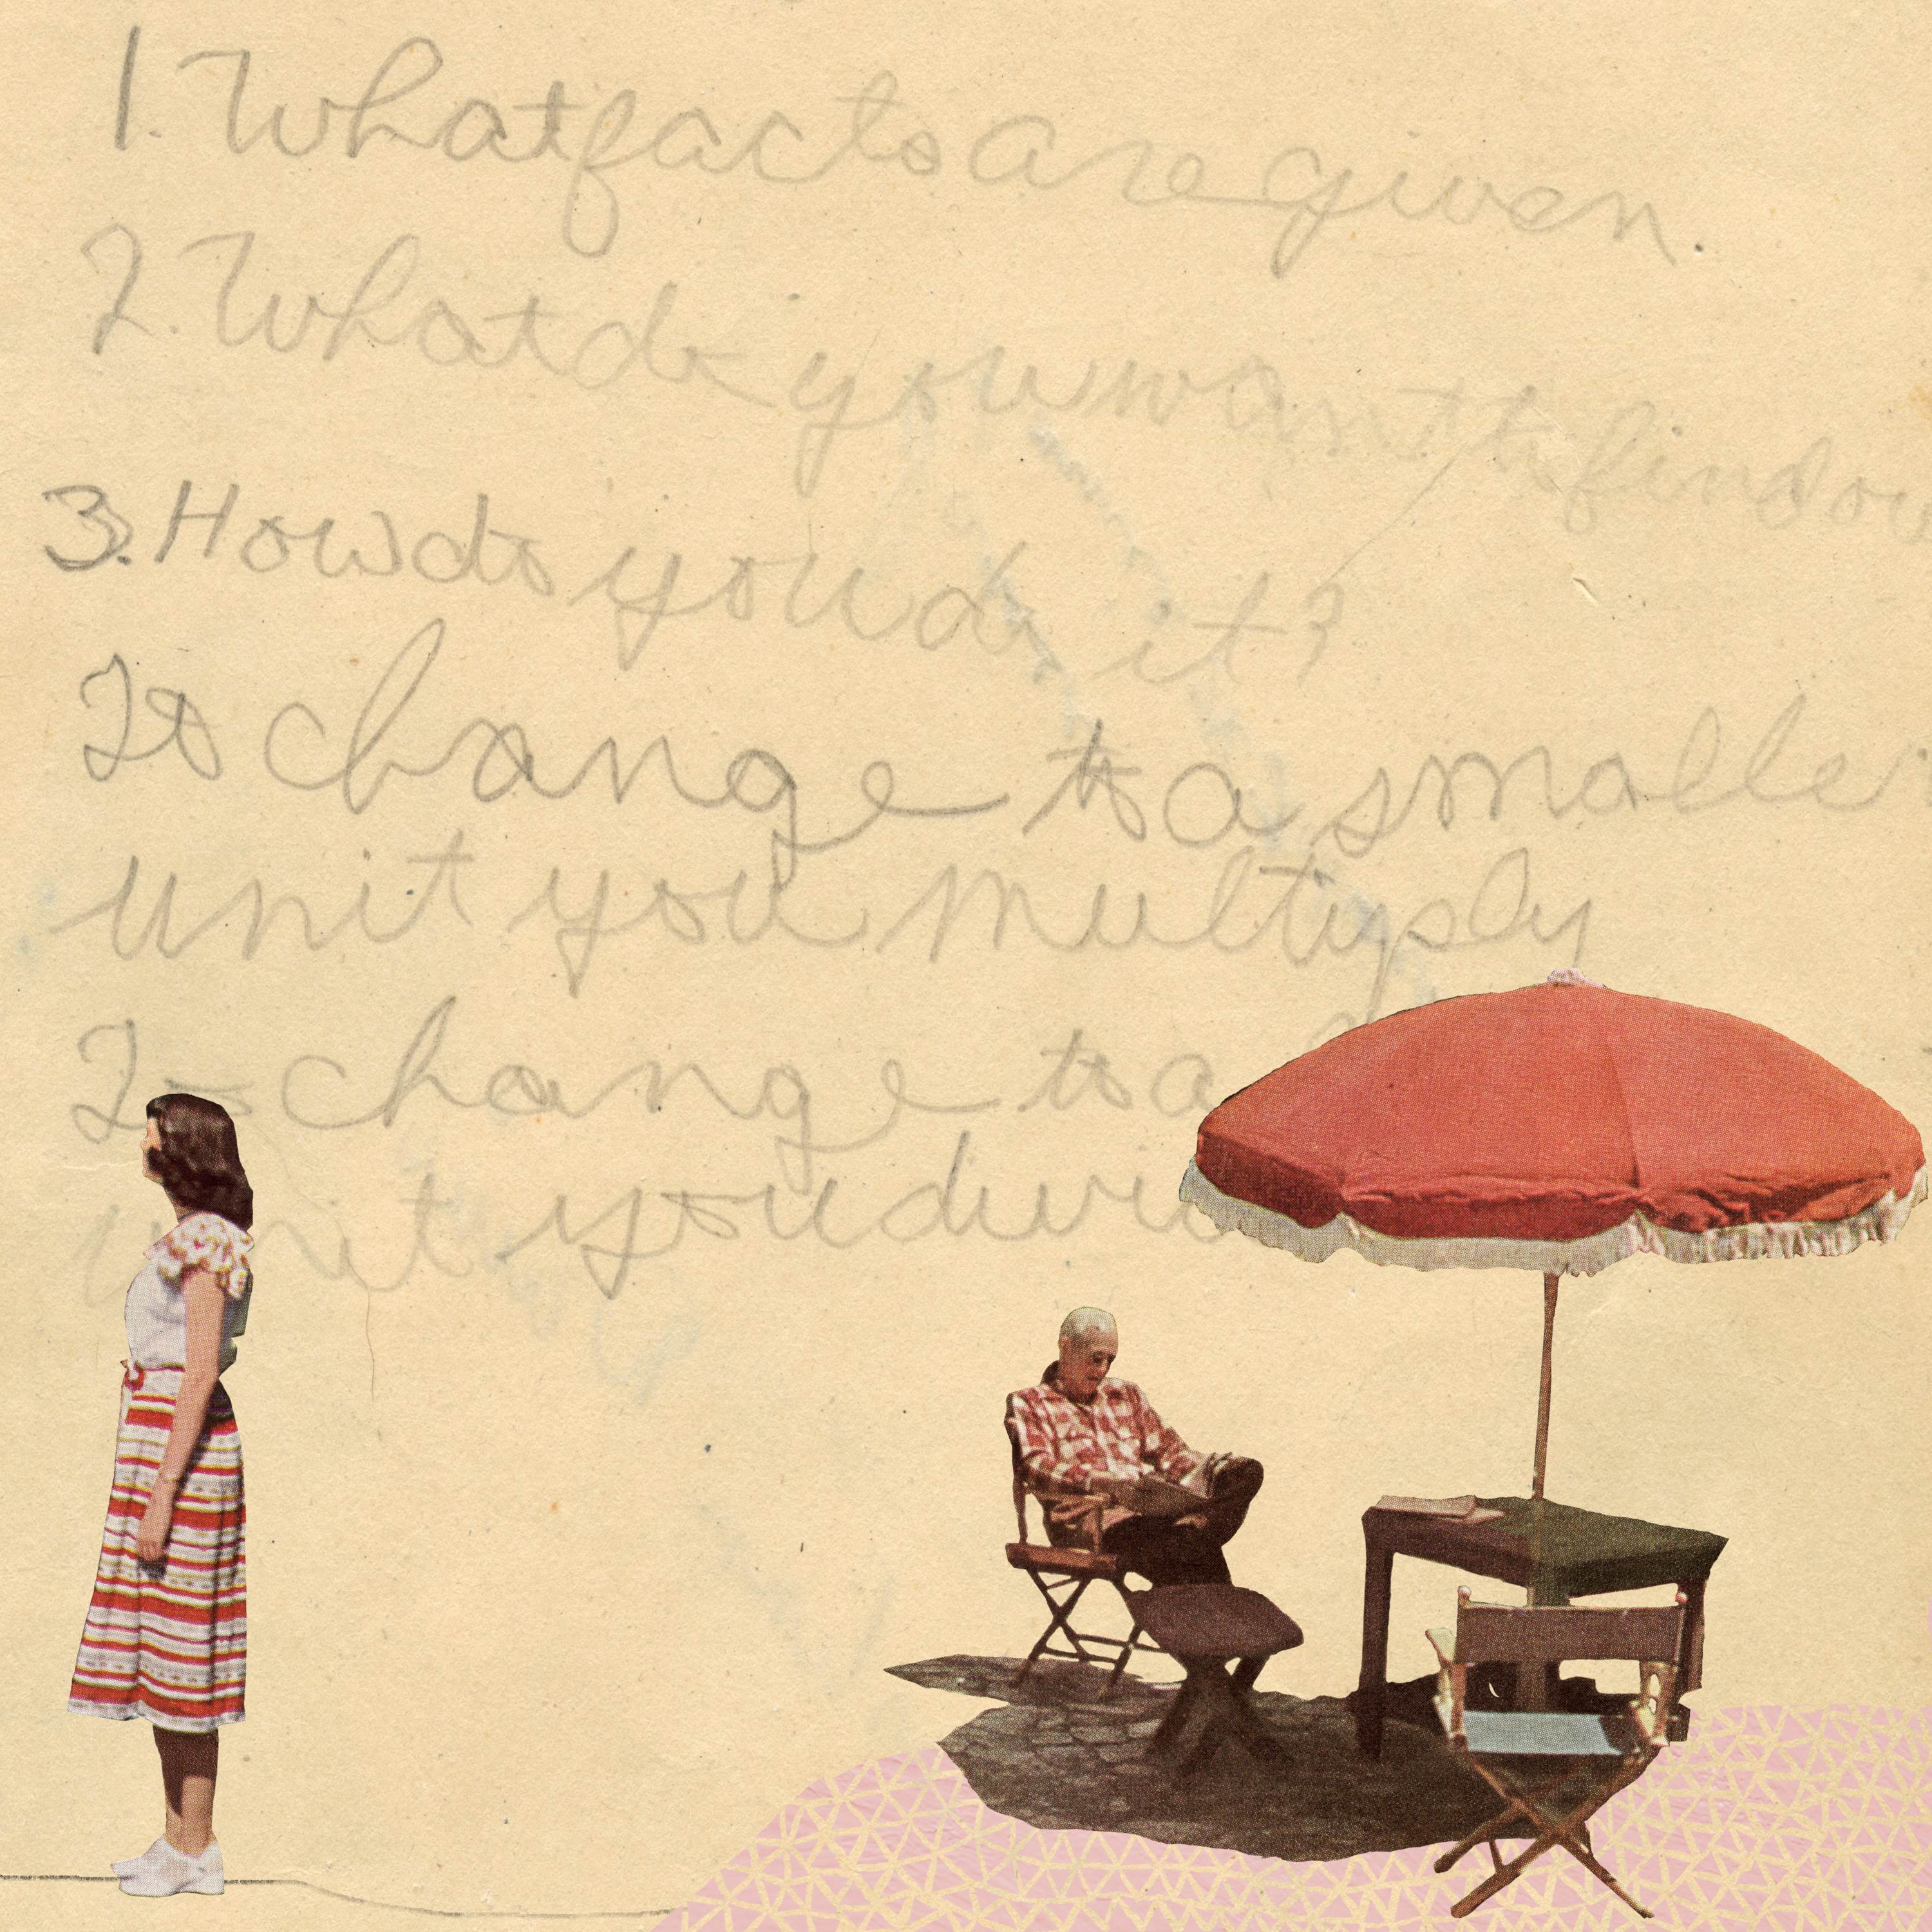 1. What facts are given.
2. What do you want to find ou
3. How do you do it?
To change to a smaller
unit you multiply
To change to a
unit you divi